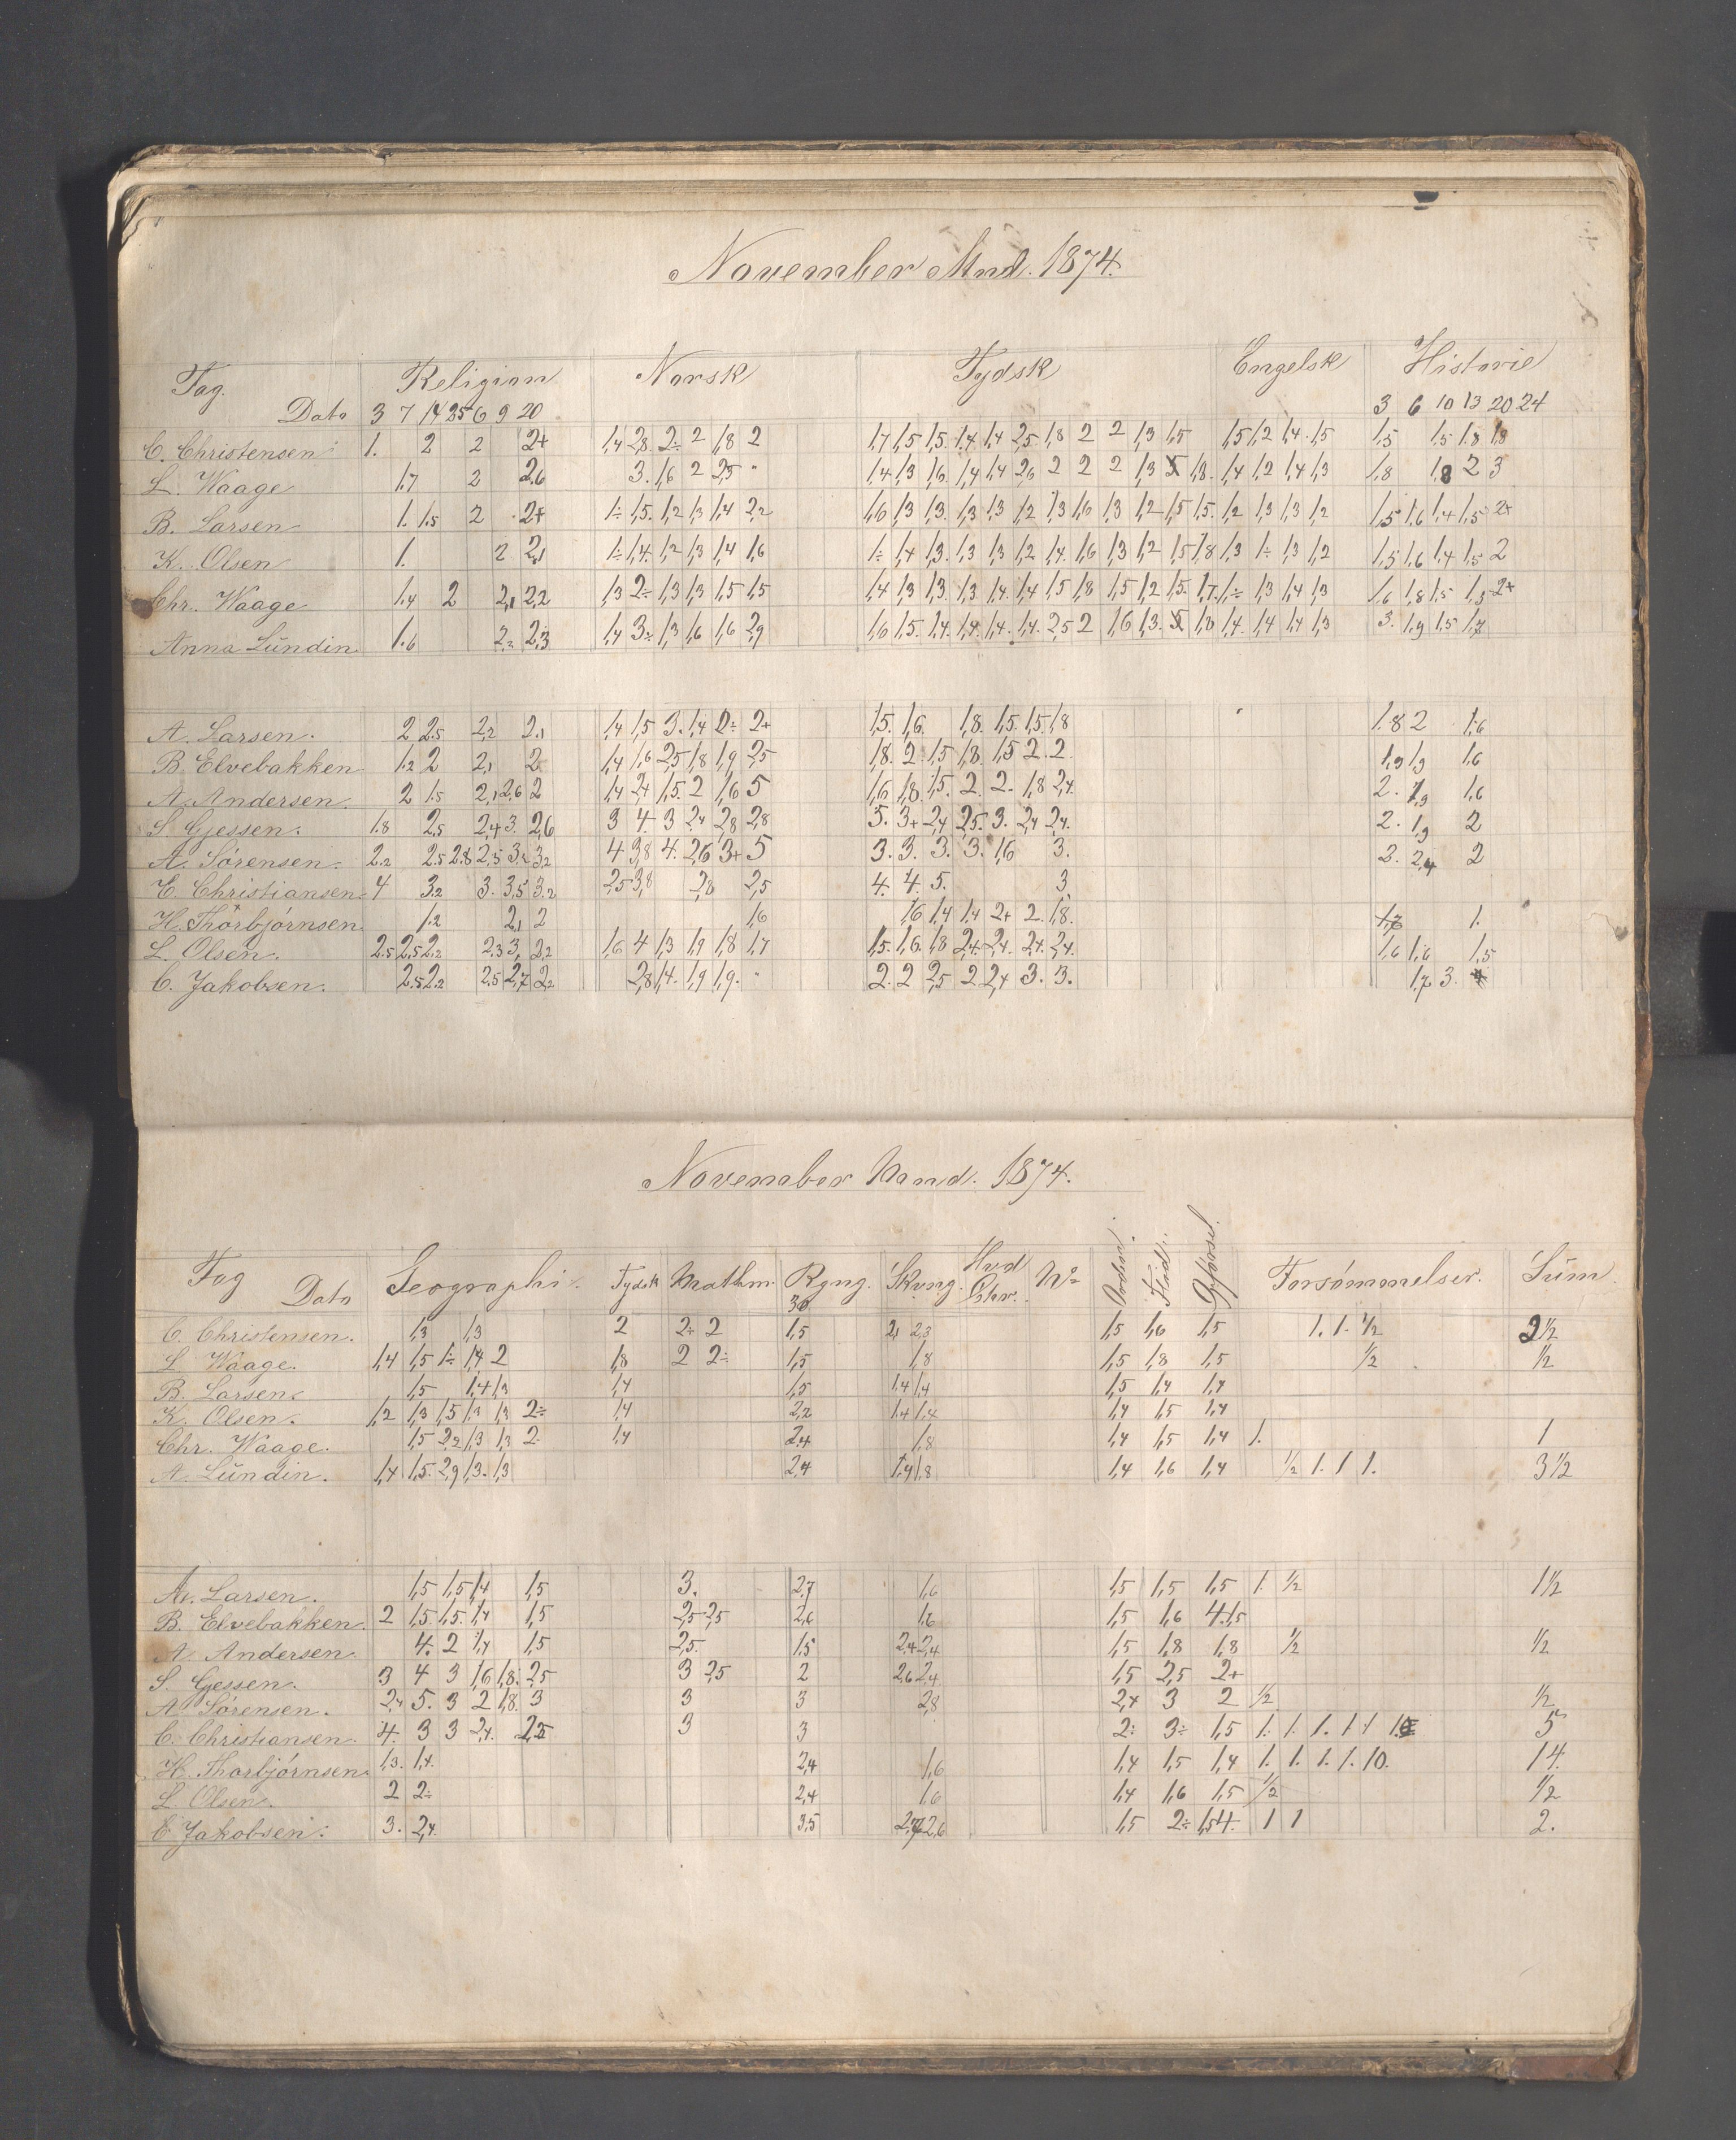 November Mnd. 1874.
Fag. Religion Norsk Tydsk Engelsk Historie
Dato 3 7 14 25 6 9 20 3 6 10 13 20 24
C. Christensen 1. 2 2 2+ 1,4 2,8 2÷ 2 1,8 2 1,7 1,5 1,5 1,4 1,4 2,5 1,8 2 2 1,3 1,5 1,5 1,2 1,4 1,5 1,5 1,5 1,8 1,8
L. Waage 1,7 2 2,6 3. 1,6 2 2,5 " 1,4 1,3 1,6 1,4 1,4 2,6 2 2 2 1,3 1,8 1,4 1,2 1,4 1,3 1,8 1,8 2 3
B. Larsen 1. 1,5 2 2+ 1÷ 1,5 1,2 1,3 1,4 2,2 1,6 1,3 1,3 1,3 1,3 1,2 1,3 1,6 1,3 1,2 1,5 1,5 1,2 1,3 1,3 1,2 1,5 1,6 1,4 1,5 2+
K. Olsen 1. 2 2,1 1÷ 1,4 1,2 1,3 1,4 1,6 1÷ 1,4 1,3 1,3 1,3 1,2 1,4 1,6 1,3 1,2 1,5 1,8 1,3 1÷ 1,3 1,2 1,5 1,6 1,4 1,5 2
Chr. Waage 1,4 2 2,1 2,2 1,3 2÷ 1,3 1,3 1,5 1,5 1,4 1,3 1,3 1,3 1,4 1,4 1,5 1,8 1,5 1,2 1,5 1,7 1÷ 1,3 1,4 1,3 1,6 1,8 1,5 1,5 2+
Anna Lundin 1,6 2,2 2,3 1,4 3÷ 1,3 1,6 1,6 2,9 1,6 1,5 1,4 1,4 1,4 1,4 2,5 2 1,6 1,3 1,8 1,4 1,4 1,4 1,3 3. 1,9 1,5 1,7
A. Larsen. 2 2,5 2,2 2,1 1,4 1,5 3. 1,4 2÷ 2+ 1,5 1,6 1,8 1,5 1,5 1,8 1.8 2 1,6
B. Elvebakken 1,2 2 2,1 2 1,4 1,6 2,5 1,8 1,9 2,5 1,8 2 1,5 1,8 1,5 2. 2 1,9 1,9 1,6
A. Andersen. 2 1,5 2,1 2,6 2 1,4 2,4 1,5 2 1,6 5 1,6 1,8 1,5 2. 2. 1,8 2,4 2. 1,9 1,6
S. Gjessen. 1.8 2,5 2,4 3. 2,6 3 4. 3 2,4 2,8 2,8 5. 3+ 2,4 2,5 3. 2,4 2,4 2. 1,9 2
A. Sørensen. 2.2 2.5 2.8 2,5 3,2 3,2 4 3,8 4. 2,6 3+ 5 3. 3. 3. 3. 1,6 3. 2. 2,4 2
E. Christiansen. 4 3,2 3. 3,5 3,2 2,5 3,8 2,8 2,5 4. 4. 5. 3
H. Thorbjørnsen. 1.2 2,1 2 1,6 1,6 1,4 1,4 2+ 2. 1,8. 1,7 1.
L. Olsen. 2.5 2,5 2,2 2,3 3, 2,2 1,6 4 1,3 1,9 1,8 1,7 1,5 1,6 1,8 2,4 2,4 2,4 2,4 1,6 1,6 1,5
C. Jakobsen. 2.5 2,2 2.5 2,7 2,2 2,8 1,4 1,9 1,9. " 2. 2 2,5 2. 2,4 3. 3. 1,7 3.
November Mand. 1874.
Fag Geographi. Tydsk Mathm. Rgng. Skvng. Hvd Chr. No Orden. Flid. Opførsel. Forsømmelser. Sum
Dato 30
C. Christensen. 1,3 1,3 2 2+ 2 1,5 2,1 2,3 1,5 1,6 1,5 1. 1. ½ 2½
L. Waage. 1,4 1,5 1÷ 1,4 2 1,8 2 2÷ 1,5 1,8 1,5 1,8 1,5 ½ ½
B. Larsen. 1,5 1,4 1,3 1,4 1,5 1,4 1,4 1,5 1,4 1,4
K. Olsen. 1,2 1,3 1,5 1,3 1,3 2÷ 1,4 2,2 1,4 1,4 1,4 1,5 1,4
Chr. Waage. 1,5 2,2 1,3 1,3 2 1,4 2,4 1,8 1,4 1,5 1,4 1. 1
A. Lundin. 1,4 1,5 2,9 1,3 1,3 2,4 1,4 1,8 1,4 1,6 1,4 ½ 1. 1 1. 3½
A. Larsen. 1,5 1,5 1,4 1,5 3. 2,7 1,6 1,5 1,5 1,5 1. ½ 1½
B. Elvebakken. 2 1,5 1,5 1,4 1,5 2,5 2,5 2,6 1,6 1,5 1,6 4. 1,5
A. Andersen 4. 2 1,4 1,5 2,5. 1,5 2,4 2,4 1,5 1,8 1,8 ½ ½
S. Gjessen. 3 4 3 1,6 1,8. 2,5 3 2,5 2 2,6 2,4 1,5 2,5 2+
A. Sørensen. 2,4 5. 3 2 1,8 3 3 3 2,8 2,4 3 2 ½ ½
C. Christiansen. 4. 3 3 2,4. 2,5 3 3 2÷ 3÷ 1,5 1. 1. 1. 1. 1. 5
H. Thorbjørnsen 1,3. 1,4. 2,4 1,6 1,4 1,5 1,4 1. 1. 1. 1. 10. 14.
L. Olsen. 2 2÷ 2,4 1,6 1,4 1,6 1,5 ½ ½
E Jakobsen. 3. 2,4. 3,5 2,6 1,5 2÷ 1,5 4. 1 1 2.